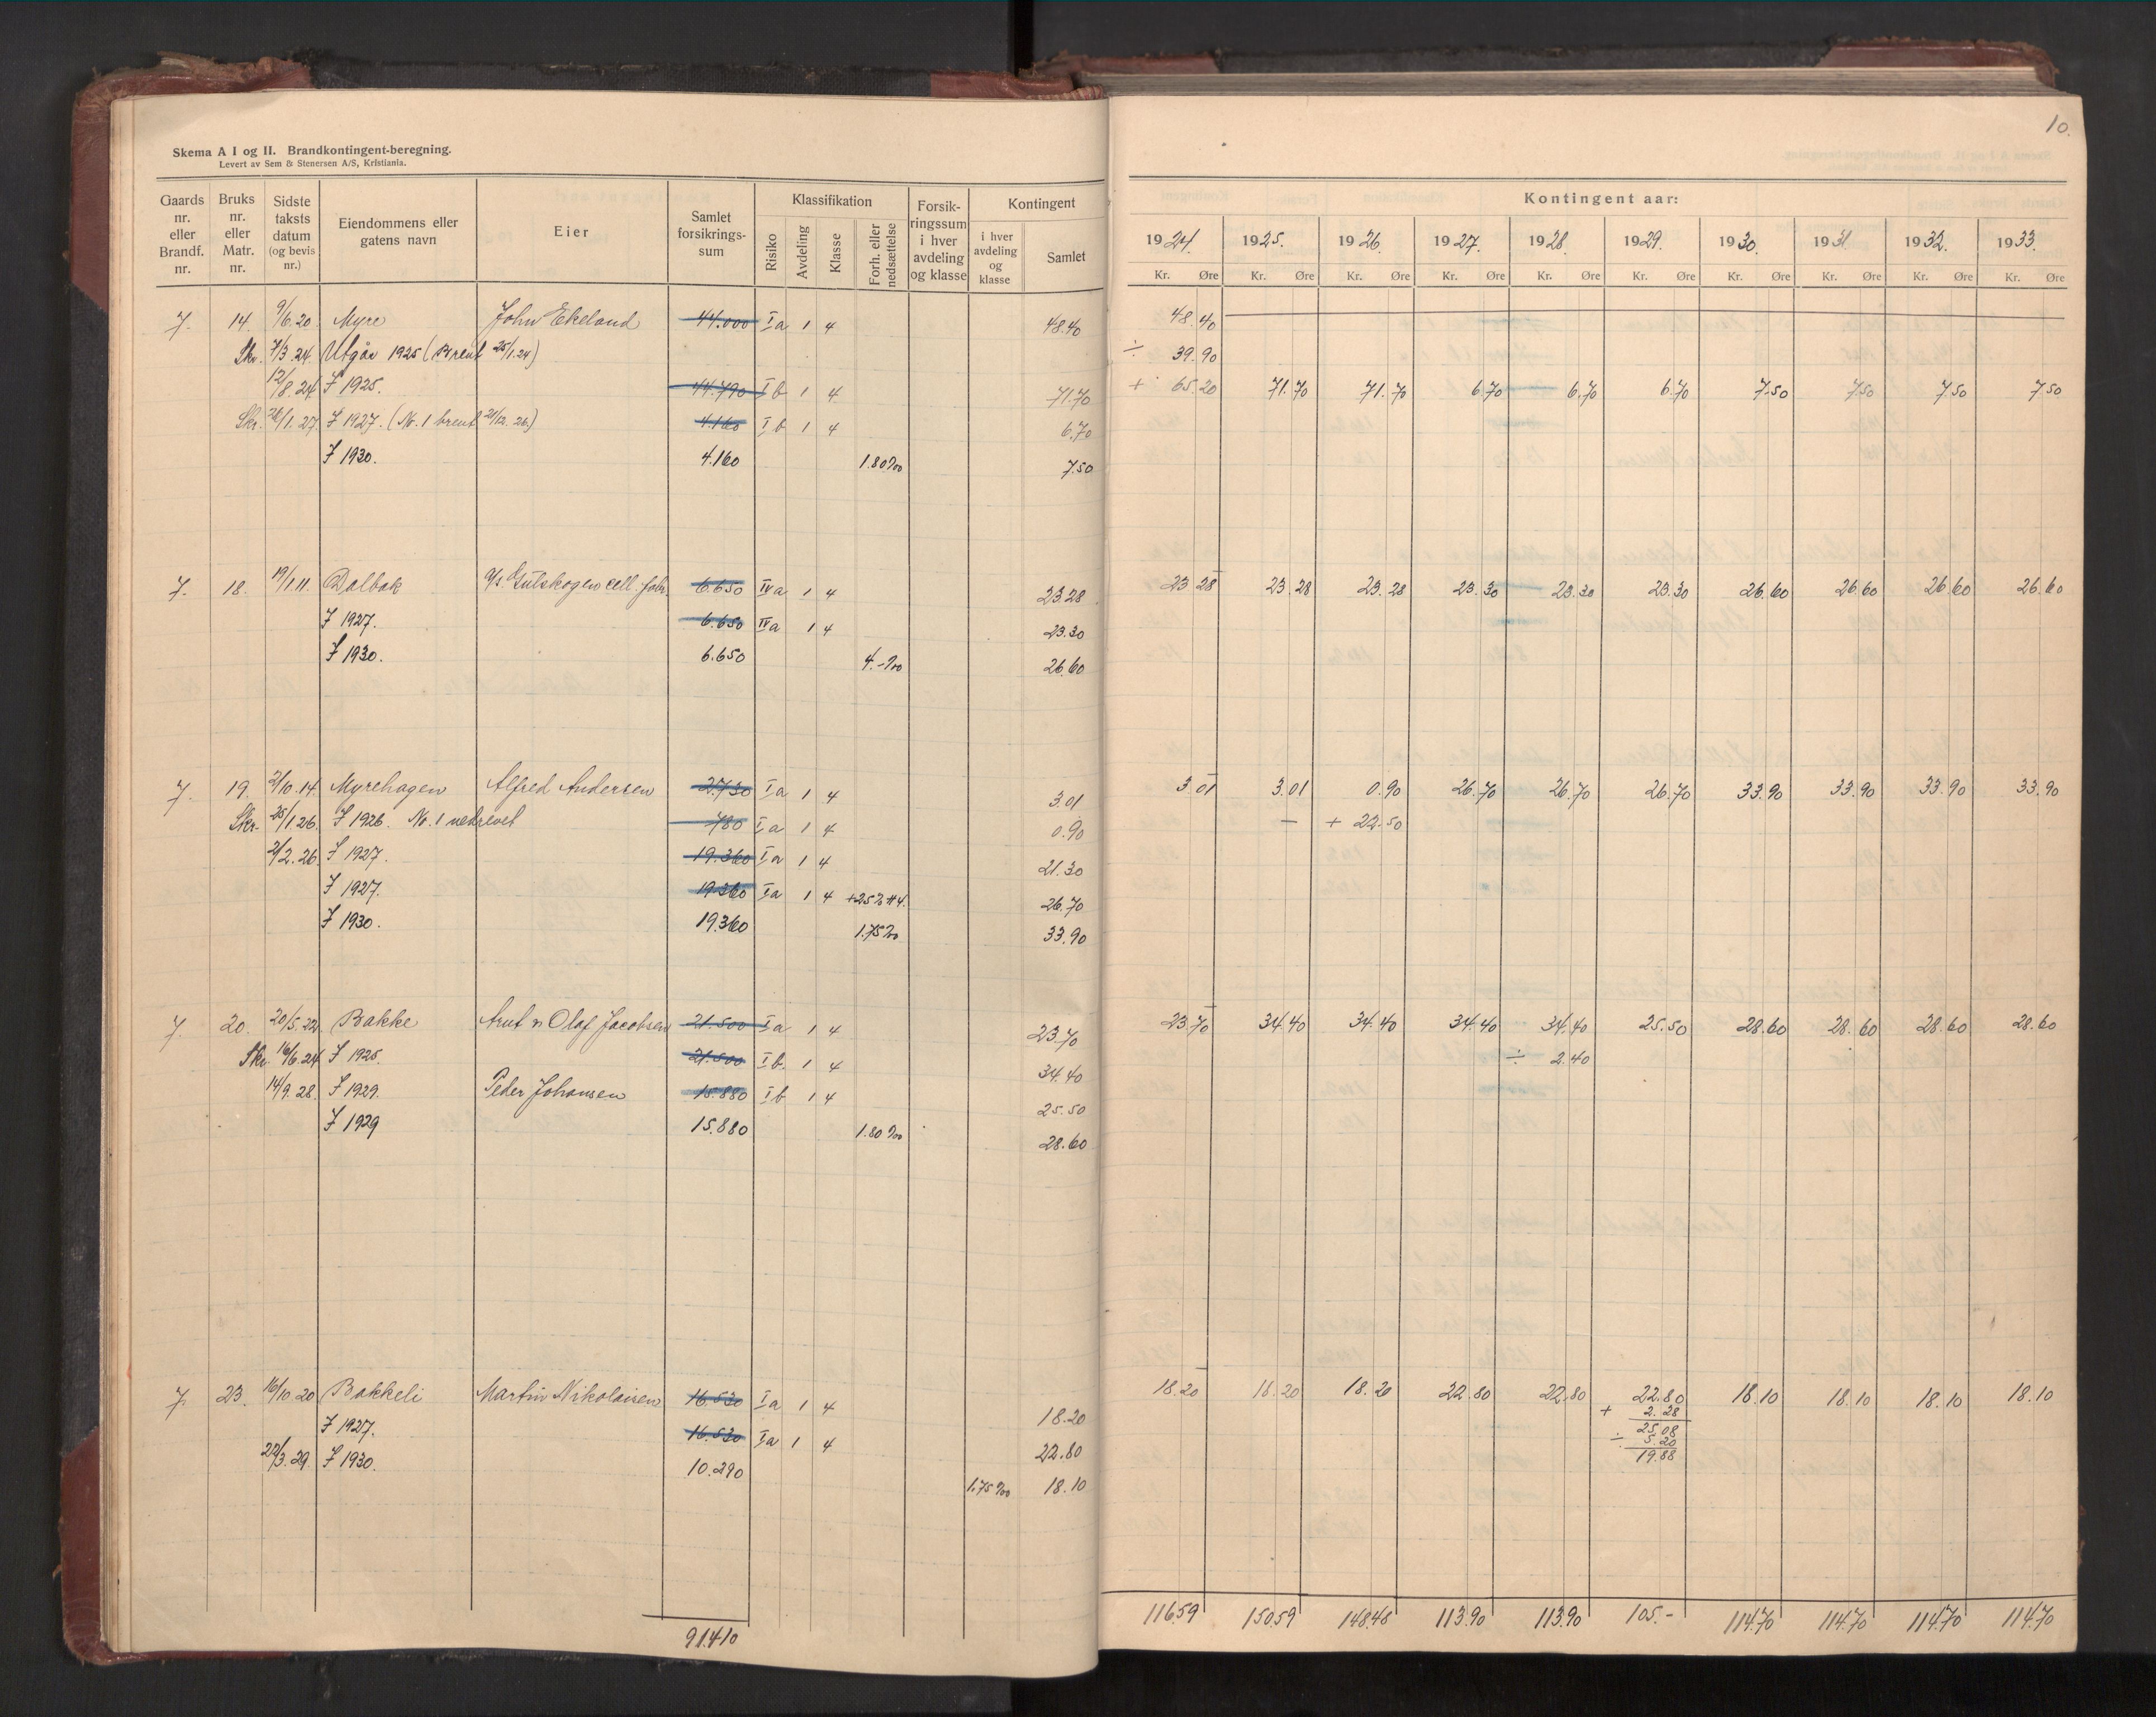 Skema A I og II. Brandkontingent-beregning.
Levert av Sem & Stenersen A/S, Kristiania.
10.
Gaards nr. eller Brandf. nr. | Bruks nr. eller Matr. nr. | Sidste taksts datum (og bevis nr.) | Eiendommens eller gatens navn | Eier | Samlet forsikrings-sum | Klassifikation | Risiko | Avdeling | Klasse | Forh. eller nedsættelse | Forsik-ringssum i hver avdeling og klasse | Kontingent | i hver avdeling og klasse | Samlet
Kontingent aar:
1924. 1925. 1926. 1927. 1928. 1929. 1930. 1931. 1932. 1933.
Kr. Øre Kr. Øre Kr. Øre Kr. Øre Kr. Øre Kr. Øre Kr. Øre Kr. Øre Kr. Øre Kr. Øre
7. 14. 9/6.20. Myre John Ekeland 44.000 Ia 1 4 48.40 48.40
Skr. 7/3.24. Utgår 1925 (Brent 25/1.24) ÷ 39.90
12/8.24 F 1925. 44.790 Ib 1 4 71.70 + 65.20 71.70 71.70 6.70 6.70 6.70 7.50 7.50 7.50 7.50
Skr. 26/1.27. F 1927. (No. 1 brent 21/12.26.) 4.160 Ib 1 4 6.70
F 1930. 4.160 1.80‰ 7.50
7. 18. 19/1.11. Dalbak A/s. Gulskogen cell. fabr. 6.650 IVa 1 4 23.28 23 28 23.28 23.28 23.30 23.30 23.30 26.60 26.60 26.60 26.60
F 1927. 6.650 IVa 1 4 23.30
F 1930. 6.650 4.-‰ 26.60
7. 19. 2/10.14. Myrehagen Alfred Andersen 2.730 Ia 1 4 3.01 3.01 3.01 0.90 26.70 26.70 26.70 33.90 33.90 33.90 33.90
Skr. 25/1.26. F 1926. No. 1 nedrevet 780 Ia 1 4 0.90 — + 22.50
2/2.26. F 1927. 19.360 Ia 1 4 21.30
F 1927. 19.360 Ia 1 4 +25% 26.70
F 1930. 19.360 1.75‰ 33.90
7. 20. 20/5.22. Bakke Olaf Jacobsen 21.500 Ia 1 4 23.70 23.70 34.40 34.40 34.40 34.40 25.50 28.60 28.60 28.60 28.60
Skr. 16/6.24. F 1925. 21.500 Ib. 1 4 34.40 ÷ 2.40
14/9.28. F 1929. Peder Johansen 15.880 Ib 1 4 25.50
F 1929 15.880 1.80‰ 28.60
7. 23. 16/10.20 Bakkeli Martin Nikolaisen 16.530 Ia 1 4 18.20 18.20 18.20 18.20 22.80 22.80 22.80 18.10 18.10 18.10 18.10
+ 2.28
F 1927. 16.530 Ia 1 4 22.80 25.08
÷ 5.20
22/3.29. F 1930. 10.290 19.88
1.75‰ 18.10
91.410 116.59 150.59 148.48 113.90 113.90 105.- 114.70 114.70 114.70 114.70